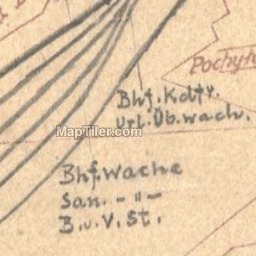 Bhf. Kdtr.
Url. Üb. wach.
MapTiler.com
Bhf. Wache
San. - " -
B. u. V. St.